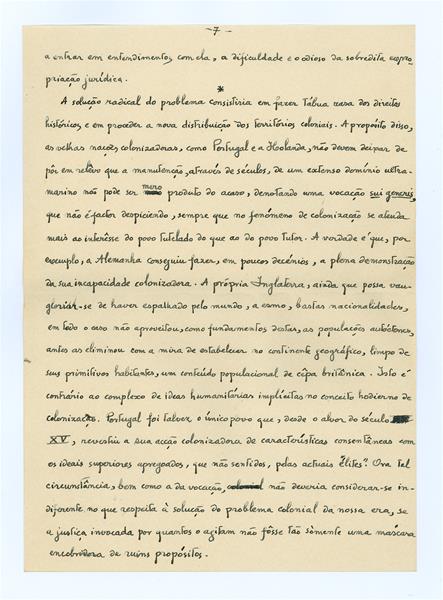 — 7 —
a entrar em entendimentos com ela, a dificuldade e o odioso da sobredita expro-
priação jurídica.
*
A solução radical do problema consistiria em fazer tábua rasa dos direitos
históricos, e em proceder a nova distribuição dos territórios coloniais. A propósito disso,
as velhas nações colonizadoras, como Portugal e a Hoolanda, não devem deixar de
pôr em relêvo que a manutenção, através de séculos, de um extenso domínio ultra-
marino não pode ser mero produto do acaso, denotando uma vocação sui generis,
que não é factor despiciendo, sempre que no fenómeno de colonização se atenda
mais ao interêsse do povo tutelado do que ao do povo tutor. A verdade é que, por
exemplo, a Alemanha conseguiu fazer, em poucos decénios, a plena demonstração
da sua incapacidade colonizadora. A própria Inglaterra, ainda que possa van-
gloriar-se de haver espalhado pelo mundo, a esmo, bastas nacionalidades,
em todo o caso não aproveitou, como fundamentos destas, as populações autóctones,
antes as eliminou com a mira de estabelecer no continente geográfico, limpo de
seus primitivos habitantes, um conteúdo populacional de cêpa britânica. Isto é
contrário ao complexo de ideas humanitárias implícitas no conceito hodierno de
colonização. Portugal foi talvez o único povo que, desde o alvor do século
XV, revestiu a sua acção colonizadora de características consentâneas com
os ideais superiores apregoados, que não sentidos, pelas actuais "élites". Ora tal
circunstância, bem como a da vocação, não deveria considerar-se in-
diferente no que respeita à solução do problema colonial da nossa era, se
a justiça invocada por quantos o agitam não fôsse tão sòmente uma máscara
encobridora de ruins propósitos.